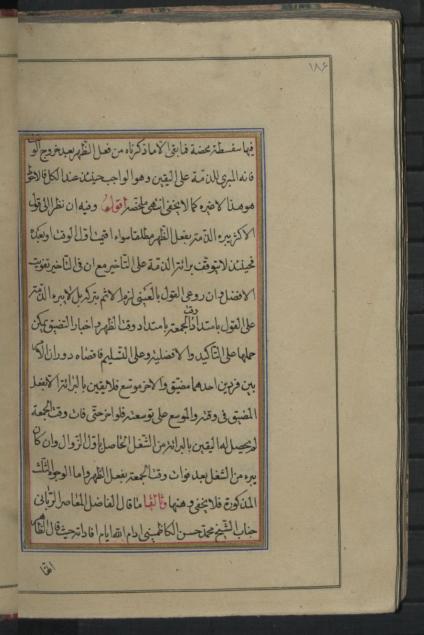 ١٨۶
فيها سفسطة محضة فما بقى الا ما ذكرناه من فعل الظهر بعد خروج الوقت
فانه المبرئ للذمة على اليقين وهو الواجب حينئذ عند الكل فالاحوط
هو هذا لا غيره كما لا يخفى انتهى ملخصا اقول وفيه ان نظر الى قول
الاكثر يبرء الذمة بفعل الظهر مطلقا سواء اتى فى اول الوقت او بعده
فحينئذ لا يتوقف برائة الذمة على التاخير مع ان فى التاخير تفويت
الافضل وان روعى القول بالعينى لزم الاثم بتركه بل لا يبرء الذمة
على القول بامتداد وقت الجمعة بامتداد وقت الظهر واخبار التضيق يمكن
حملها على التاكيد والافضلية وعلى التسليم فاقصاه دوران الامر
بين فردين احدهما مضيق والاخر موسع فلا يقين بالبرائة الا بفعل
المضيق فى وقته والموسع على توسعته فلو اخر حتى فات وقت الجمعة
لم يحصل له اليقين بالبرائة من الشغل الحاصل باول الزوال وان كان
يبرء من الشغل بعد فوات وقت الجمعة بفعل الظهر واما الوجوه الثلثة
المذكورة فلا يخفى وهنها وثالثها ما قال الفاضل المعاصر الربانى
جناب الشيخ محمد حسن الكاظمينى ادام الله ايام افاداته حيث قال الظاهر